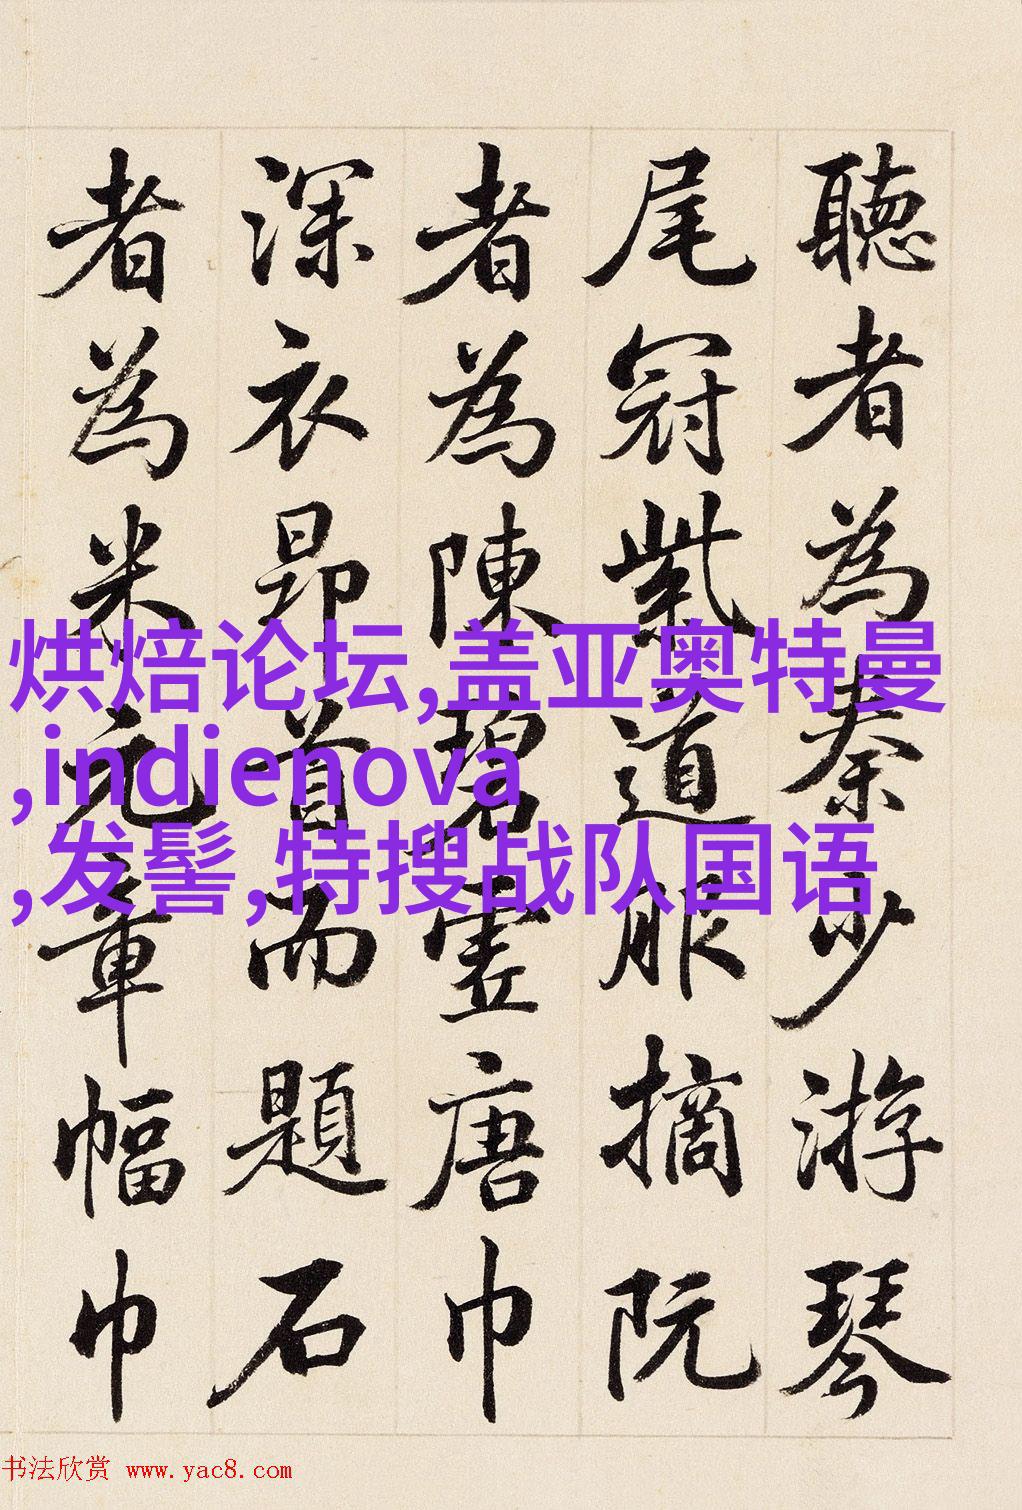 聽者為秦少游琴
尾冠紫道服摘阮
者為陳碧虛唐巾
深衣昂首而題石
者為米元章幅巾
烘焙论坛,盖亚奥特曼
,indienova
,发髻,特搜战队国语
书法欣赏 www.yac8.com